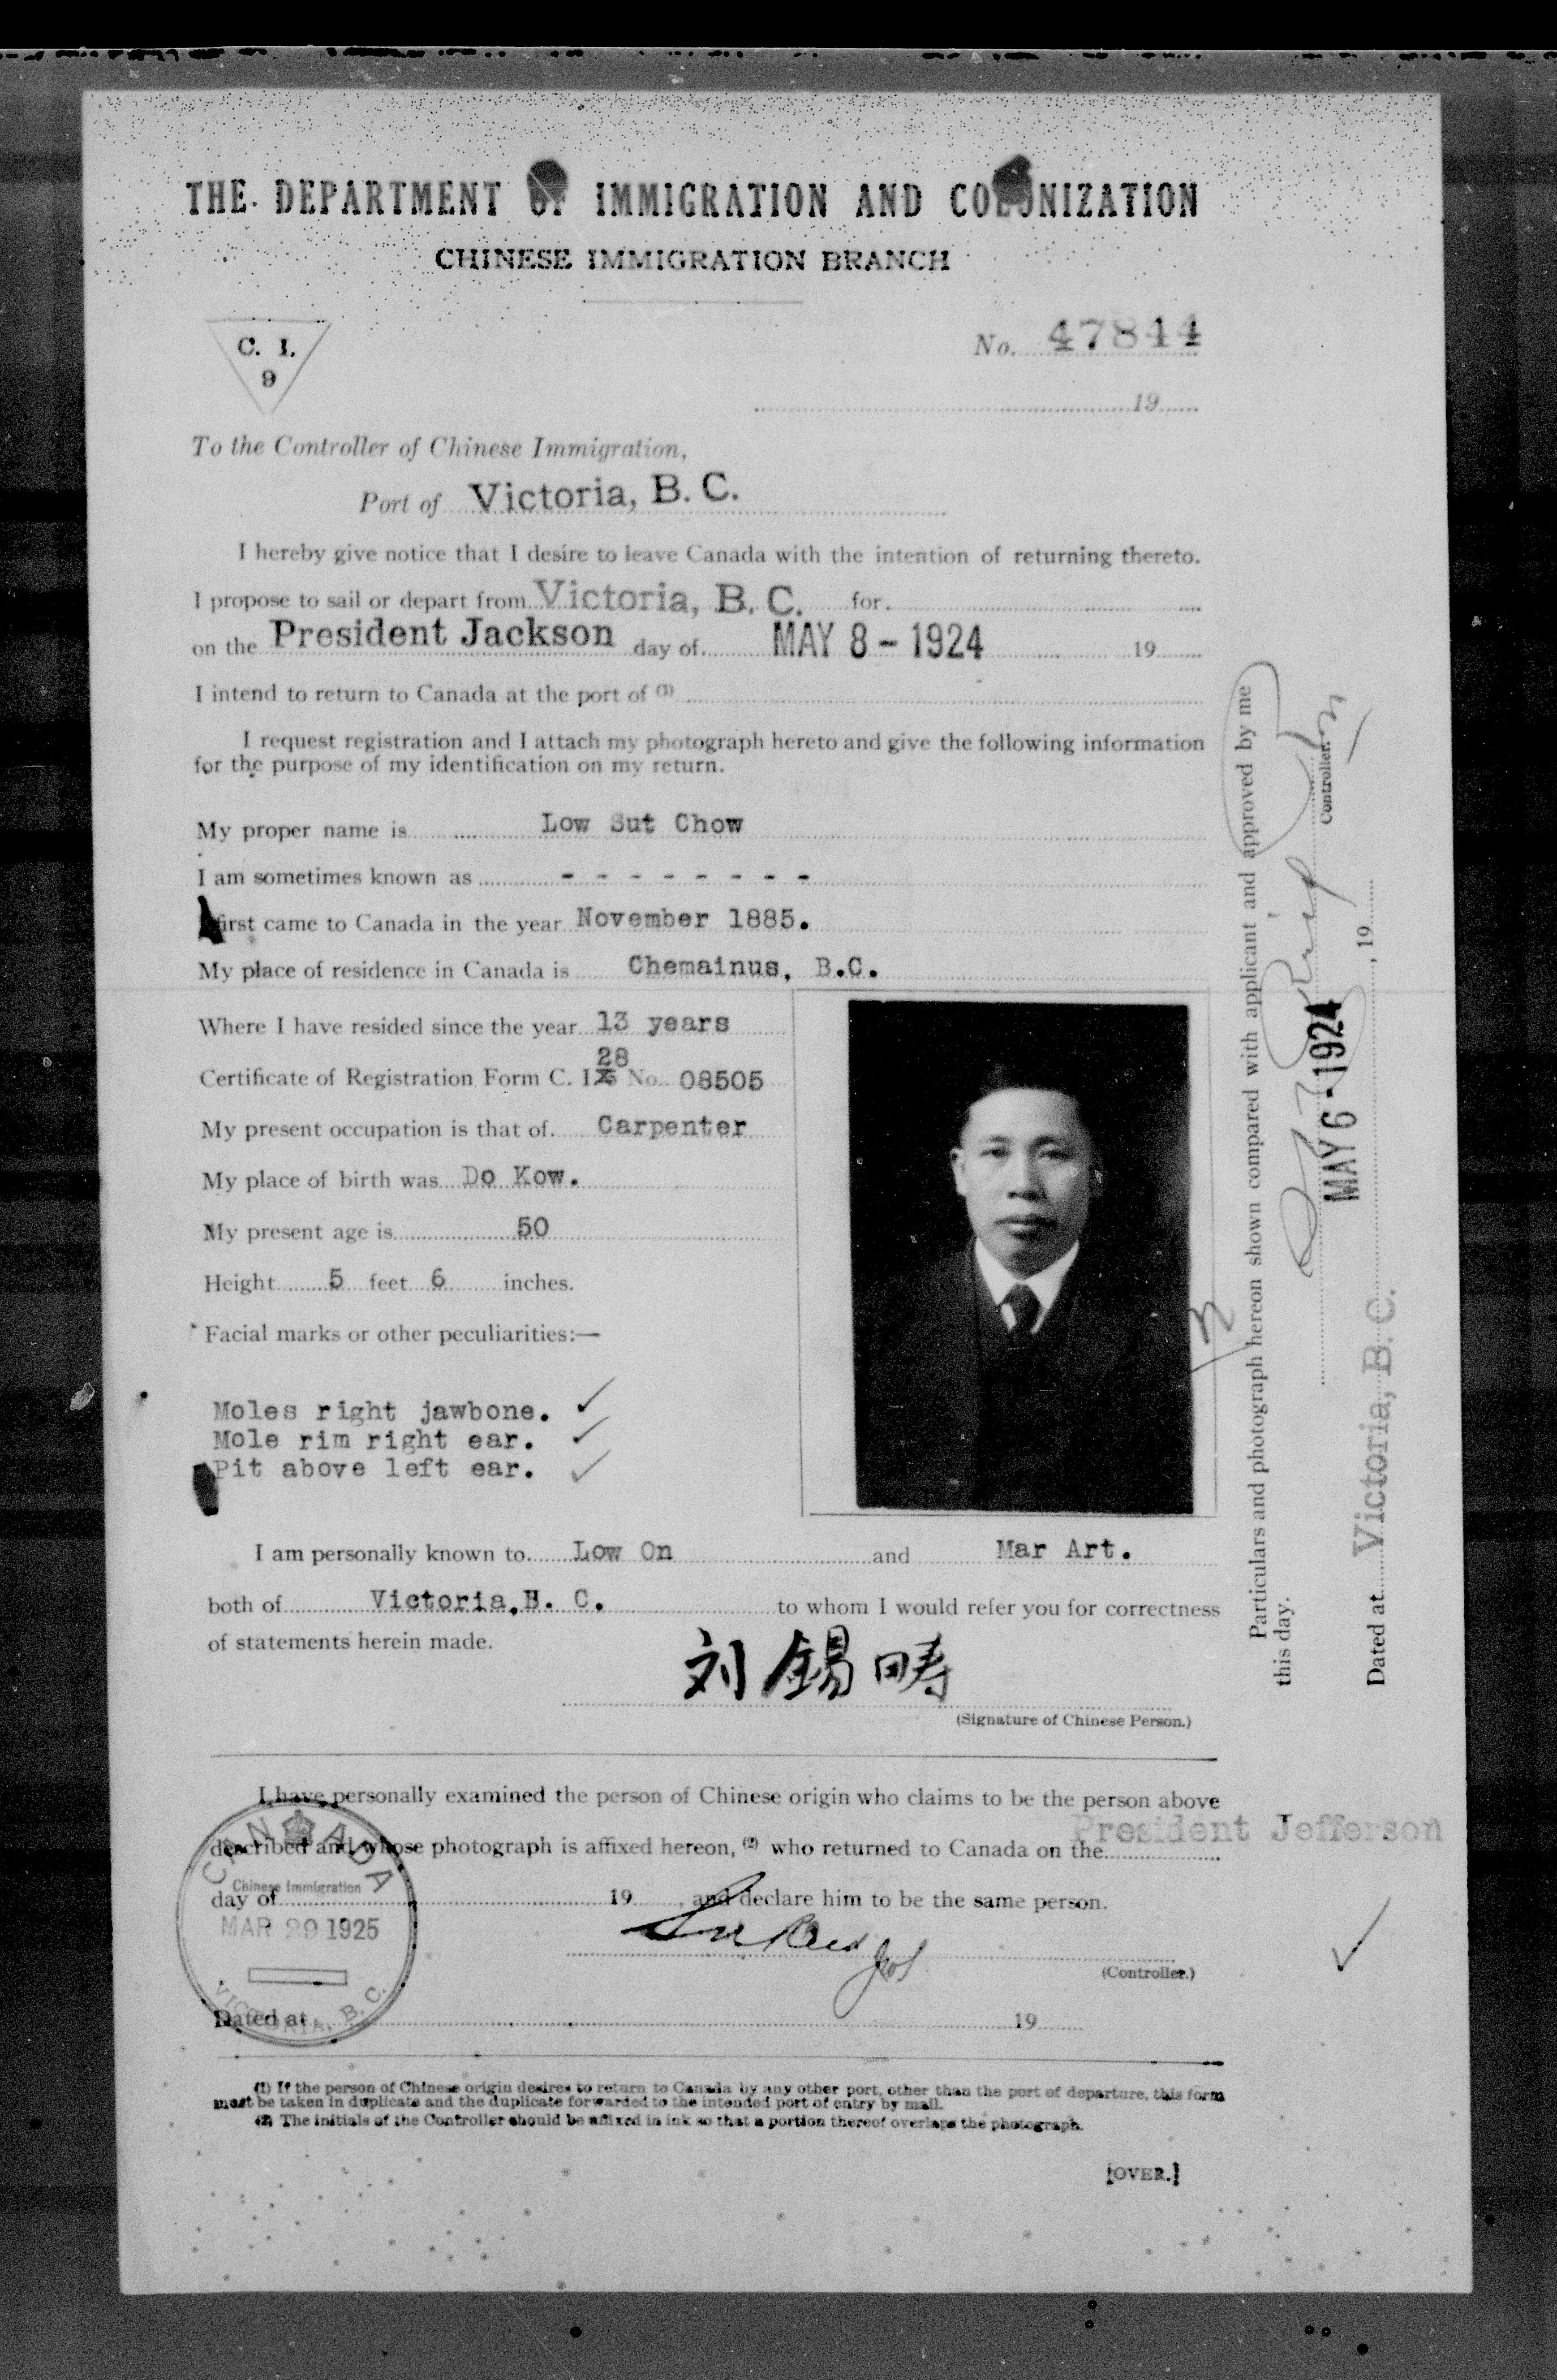 THE DEPARTMENT OF IMMIGRATION AND COLONIZATION
CHINESE IMMIGRATION BRANCH
C. I.
9
No. 47844
19
To the Controller of Chinese Immigration,
Port of Victoria, B. C.
I hereby give notice that I desire to leave Canada with the intention of returning thereto.
I propose to sail or depart from Victoria, B. C. for
on the President Jackson day of MAY 8 - 1924 19
I intend to return to Canada at the port of (1)
I request registration and I attach my photograph hereto and give the following information
for the purpose of my identification on my return.
My proper name is Low Sut Chow
I am sometimes known as - - - - - - - -
first came to Canada in the year November 1885.
My place of residence in Canada is Chemainus, B.C.
Where I have resided since the year 13 years
28
Certificate of Registration Form C. I. No. 08505
My present occupation is that of Carpenter
My place of birth was Do Kow.
My present age is 50
Height 5 feet 6 inches.
Facial marks or other peculiarities:—
Moles right jawbone. ✓
Mole rim right ear. ✓
Pit above left ear. ✓
I am personally known to Low On and Mar Art.
both of Victoria, B. C. to whom I would refer you for correctness
of statements herein made.
刘錫畴
(Signature of Chinese Person.)
Particulars and photograph hereon shown compared with applicant and approved by me
this day.
Controller.
MAY 6 - 1924
Dated at Victoria, B. C. , 19
I have personally examined the person of Chinese origin who claims to be the person above
President Jefferson
described and whose photograph is affixed hereon, (2) who returned to Canada on the
day of 19 , and declare him to be the same person.
(Controller.)
Dated at 19
CANADA
Chinese Immigration
MAR 29 1925
VICTORIA, B. C.
(1) If the person of Chinese origin desires to return to Canada by any other port, other than the port of departure, this form
must be taken in duplicate and the duplicate forwarded to the intended port of entry by mail.
(2) The initials of the Controller should be affixed in ink so that a portion thereof overlaps the photograph.
[OVER.]